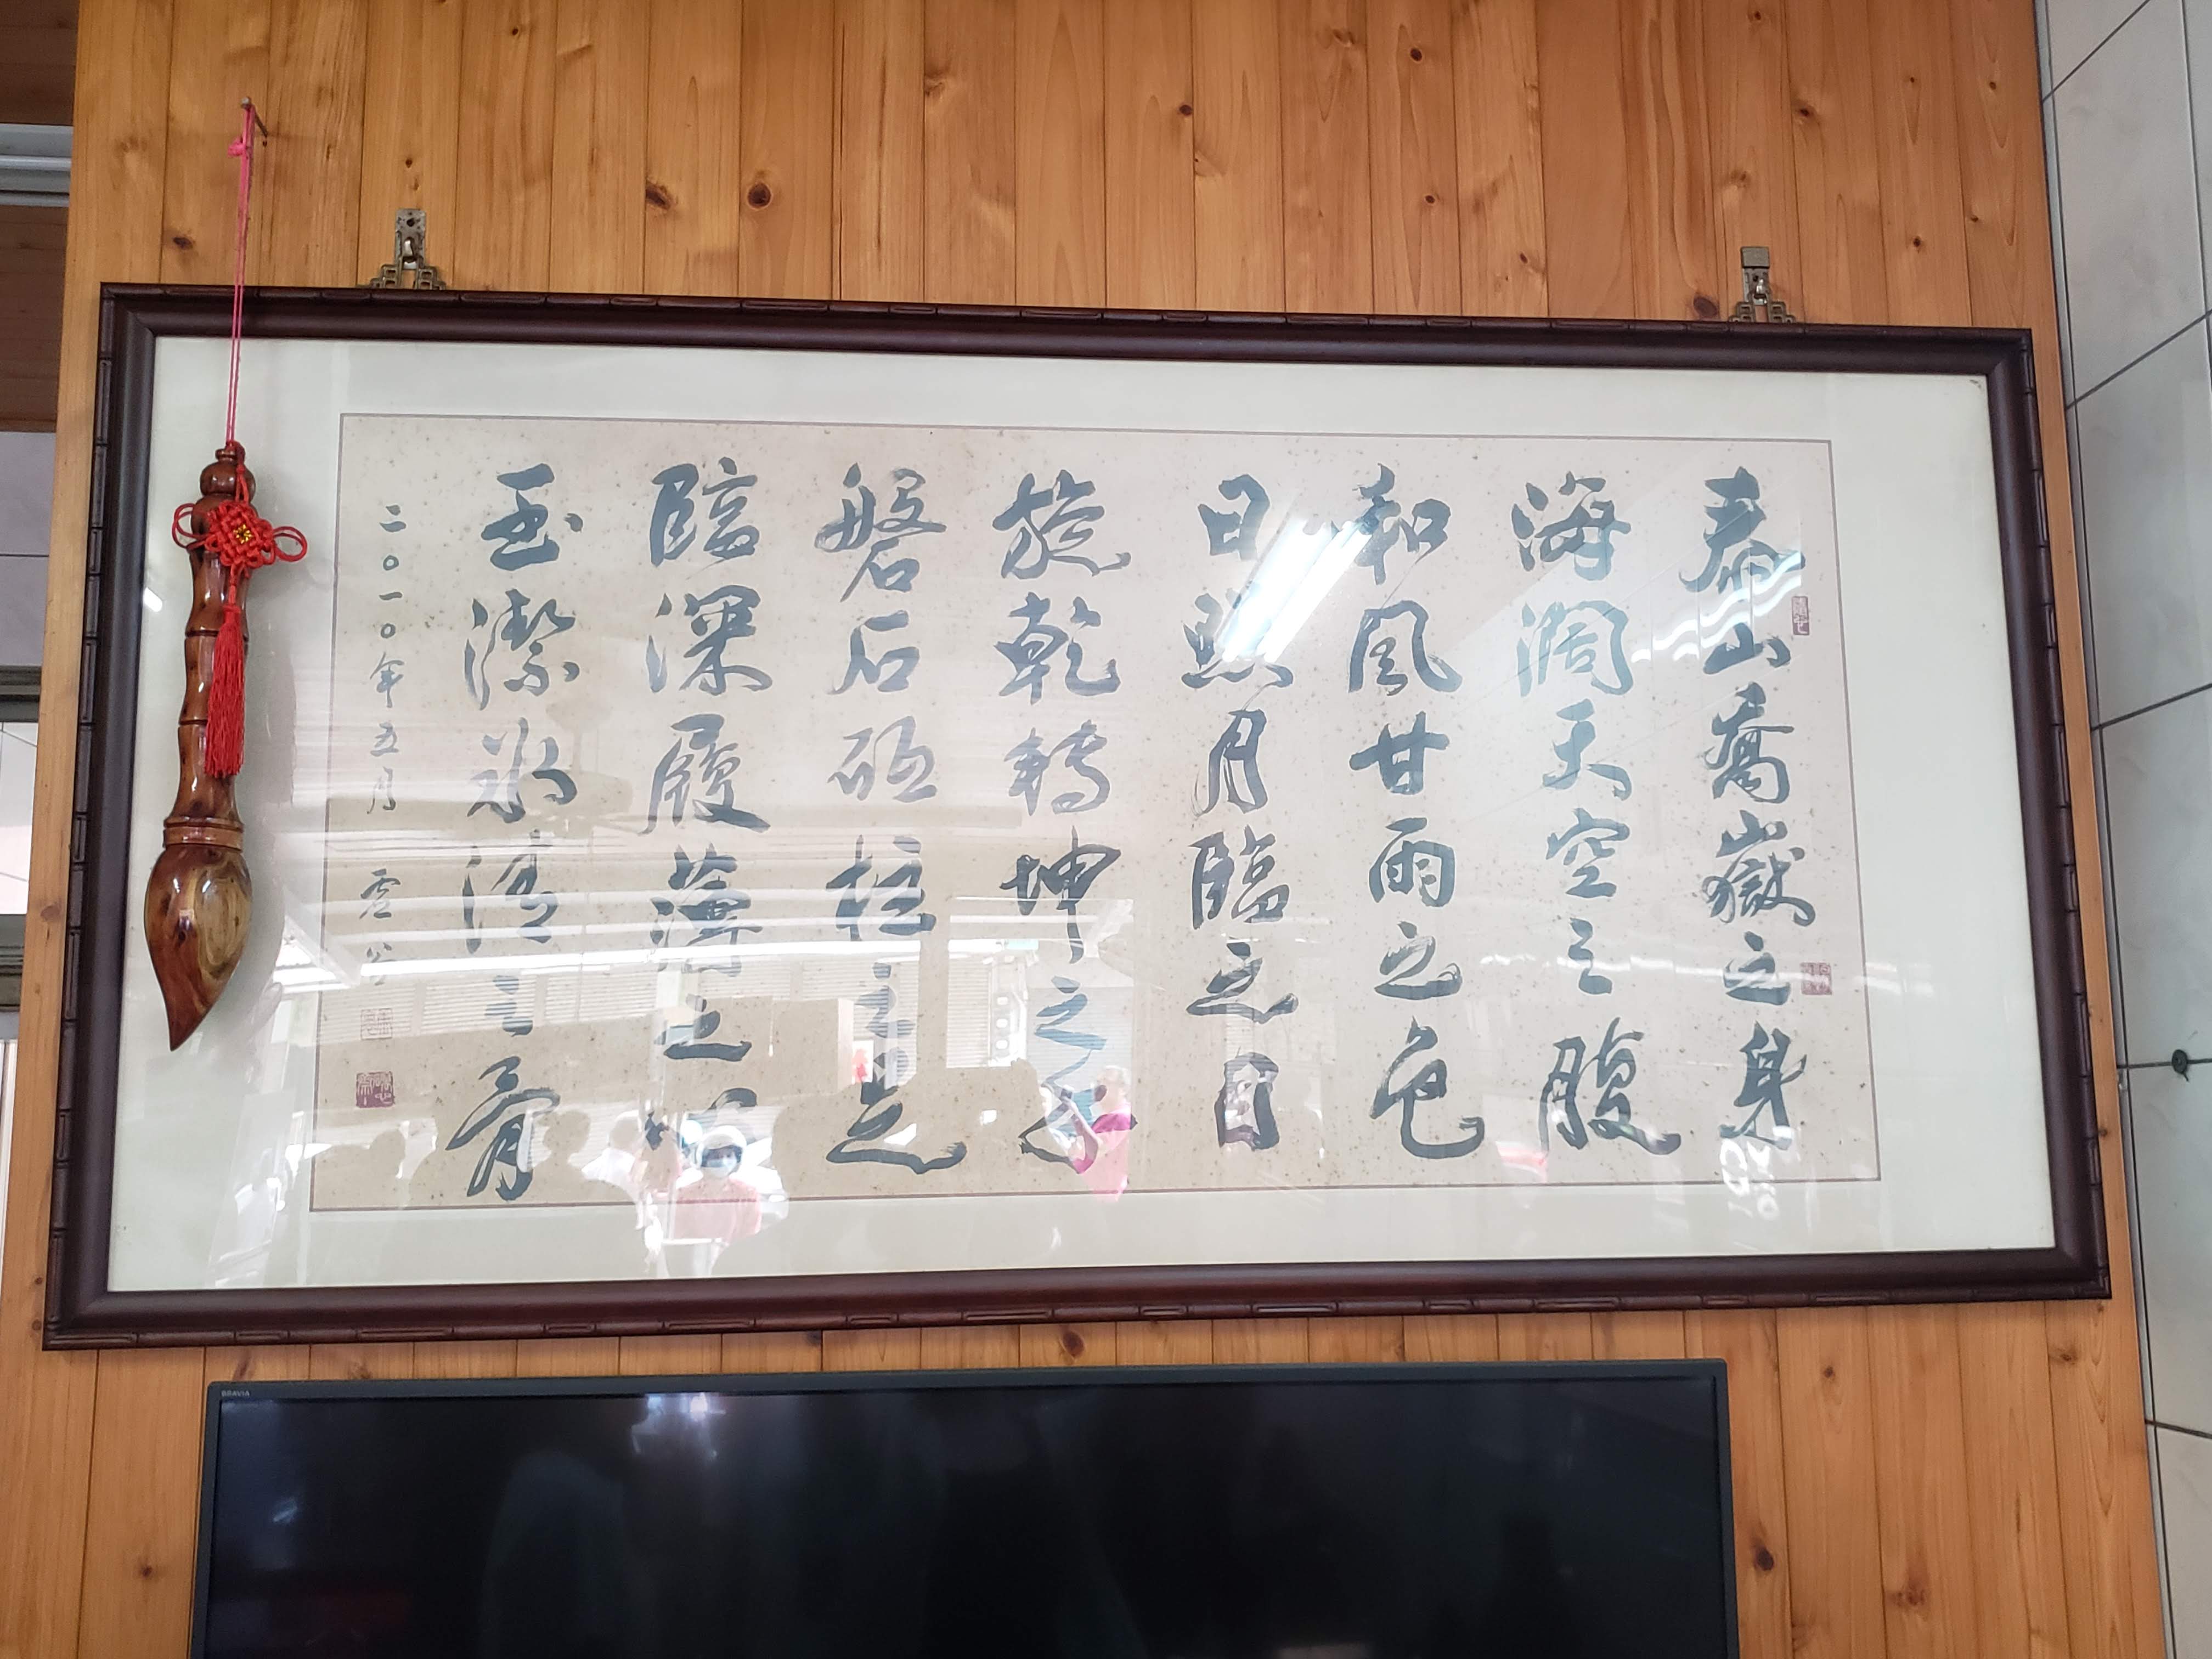 泰山喬嶽之身
海闊天空之腹
和風甘雨之色
日照月臨之目
旋乾轉坤之手
磐石砥柱之足
臨深履薄之心
玉潔冰清之骨
二〇一〇年五月
BRAVIA